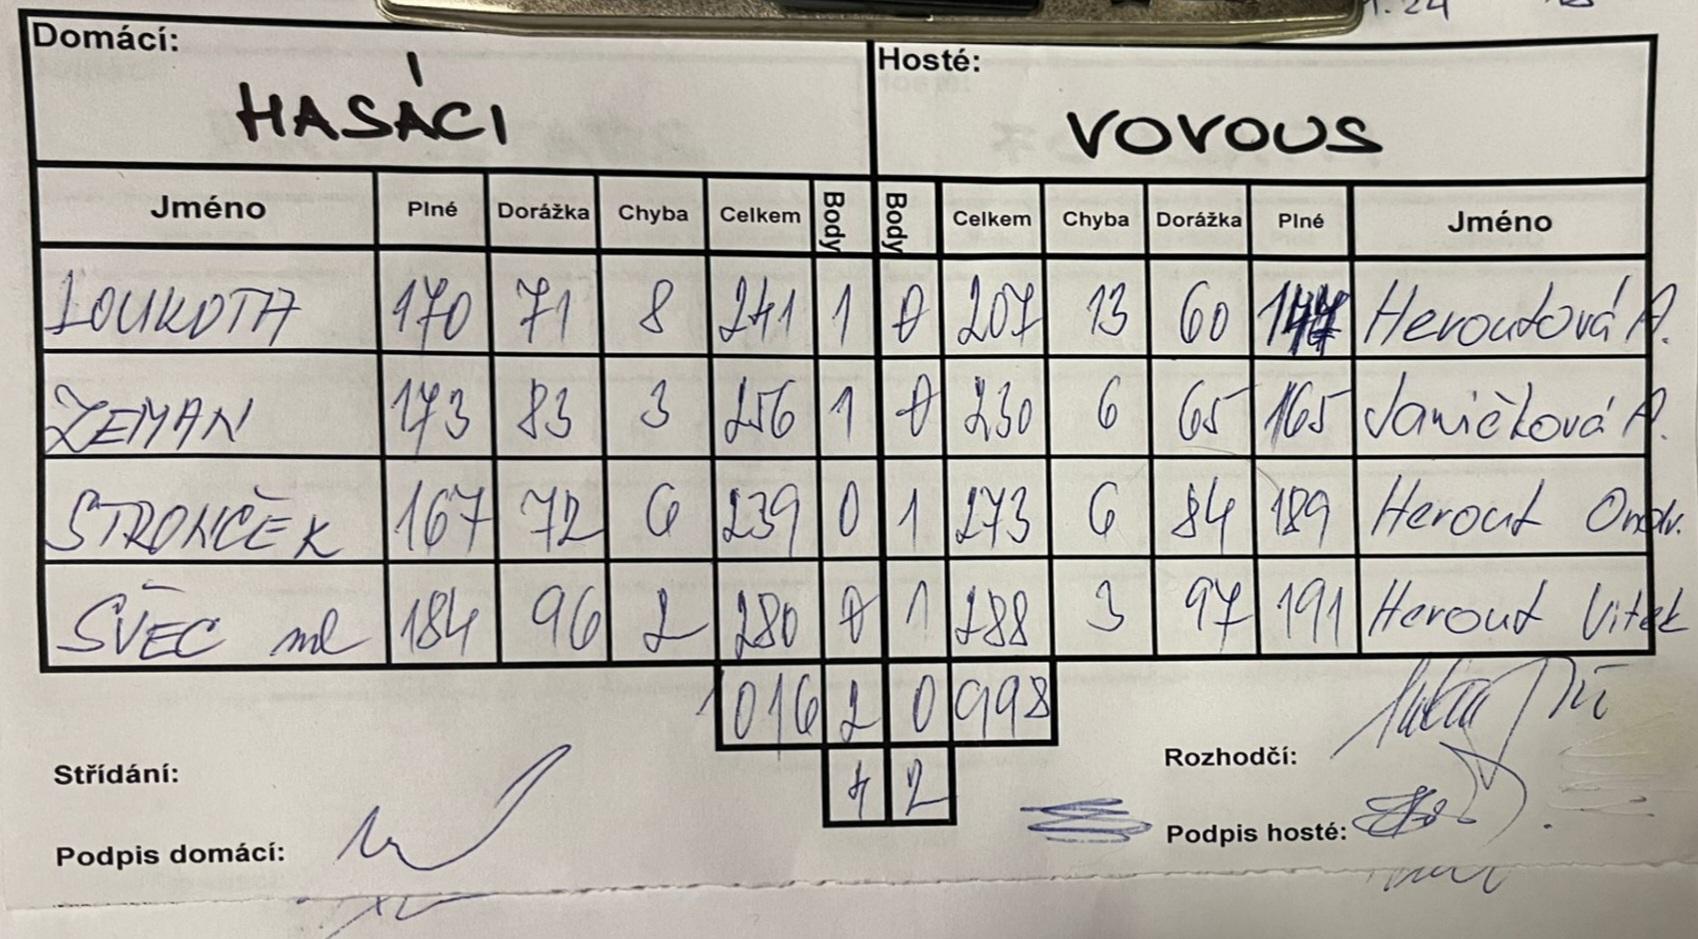 1.24
Domácí: Hosté:
HASÁCI VOVOUS
Jméno Plné Dorážka Chyba Celkem Body Body Celkem Chyba Dorážka Plné Jméno
LOUKOTA 170 71 8 241 1 0 207 13 60 147 Heroutová A.
ZEMAN 173 83 3 256 1 0 230 6 65 165 Janičková A.
STRONČEK 167 72 6 239 0 1 273 6 84 189 Herout Ondr.
ŠVEC ml 184 96 2 280 0 1 288 3 97 191 Herout Vitek
1016 2 0 998
Střídání: 4 2 Rozhodčí:
Podpis domácí: Podpis hosté: